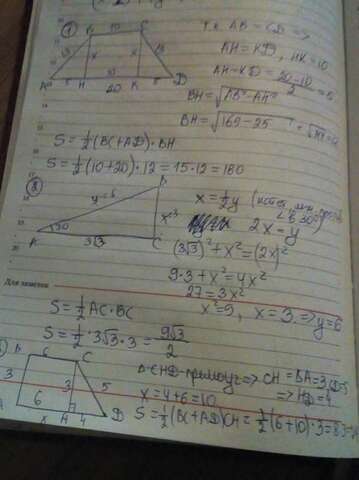 1
B 10 C
13 x x 13
A 5 H 10 K 5 D
20
т.к. AB = CD =>
AH = KD, HK = 10
AH = KD = (20-10)/2 = 5
BH = √(AB² - AH²)
BH = √(169 - 25)
S = ½(BC+AD)·BH
S = ½(10+20)·12 = 15·12 = 180
y=6
x=3
30
A 3√3 C
x = ½y
2x = y
(3√3)² + x² = (2x)²
9·3 + x² = 4x²
27 = 3x²
x² = 9, x = 3 => y = 6
Для заметок
S = ½ AC·BC
S = ½·3√3·3 = 9√3/2
B 6 C
3 3 5
A 6 H 4 D
x
Δ CHD - прямоуг => CH = BA = 3, CD=5
=> HD = 4
x = 4+6 = 10
S = ½(BC+AD)CH = ½(6+10)·3 = 8·3 = 24